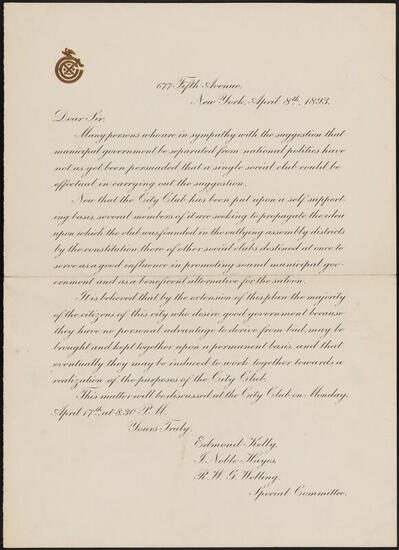 677 Fifth Avenue,
New York, April 8th, 1893.
Dear Sir,
Many persons who are in sympathy with the suggestion that
municipal government be separated from national politics have
not as yet been persuaded that a single social club could be
effectual in carrying out the suggestion.
Now that the City Club has been put upon a self support-
ing basis, several members of it are seeking to propagate the idea
upon which the club was founded in the outlying assembly districts
by the constitution there of other social clubs destined at once to
serve as a good influence in promoting sound municipal gov-
ernment and as a beneficent alternative for the saloon.
It is believed that by the extension of this plan the majority
of the citizens of this city who desire good government because
they have no personal advantage to derive from bad, may be
brought and kept together upon a permanent basis, and that
eventually they may be induced to work together towards a
realization of the purposes of the City Club.
This matter will be discussed at the City Club on Monday,
April 17th, at 8.30 P.M.
Yours Truly,
Edmond Kelly,
I. Noble Hayes,
R. W. G. Welling,
Special Committee.